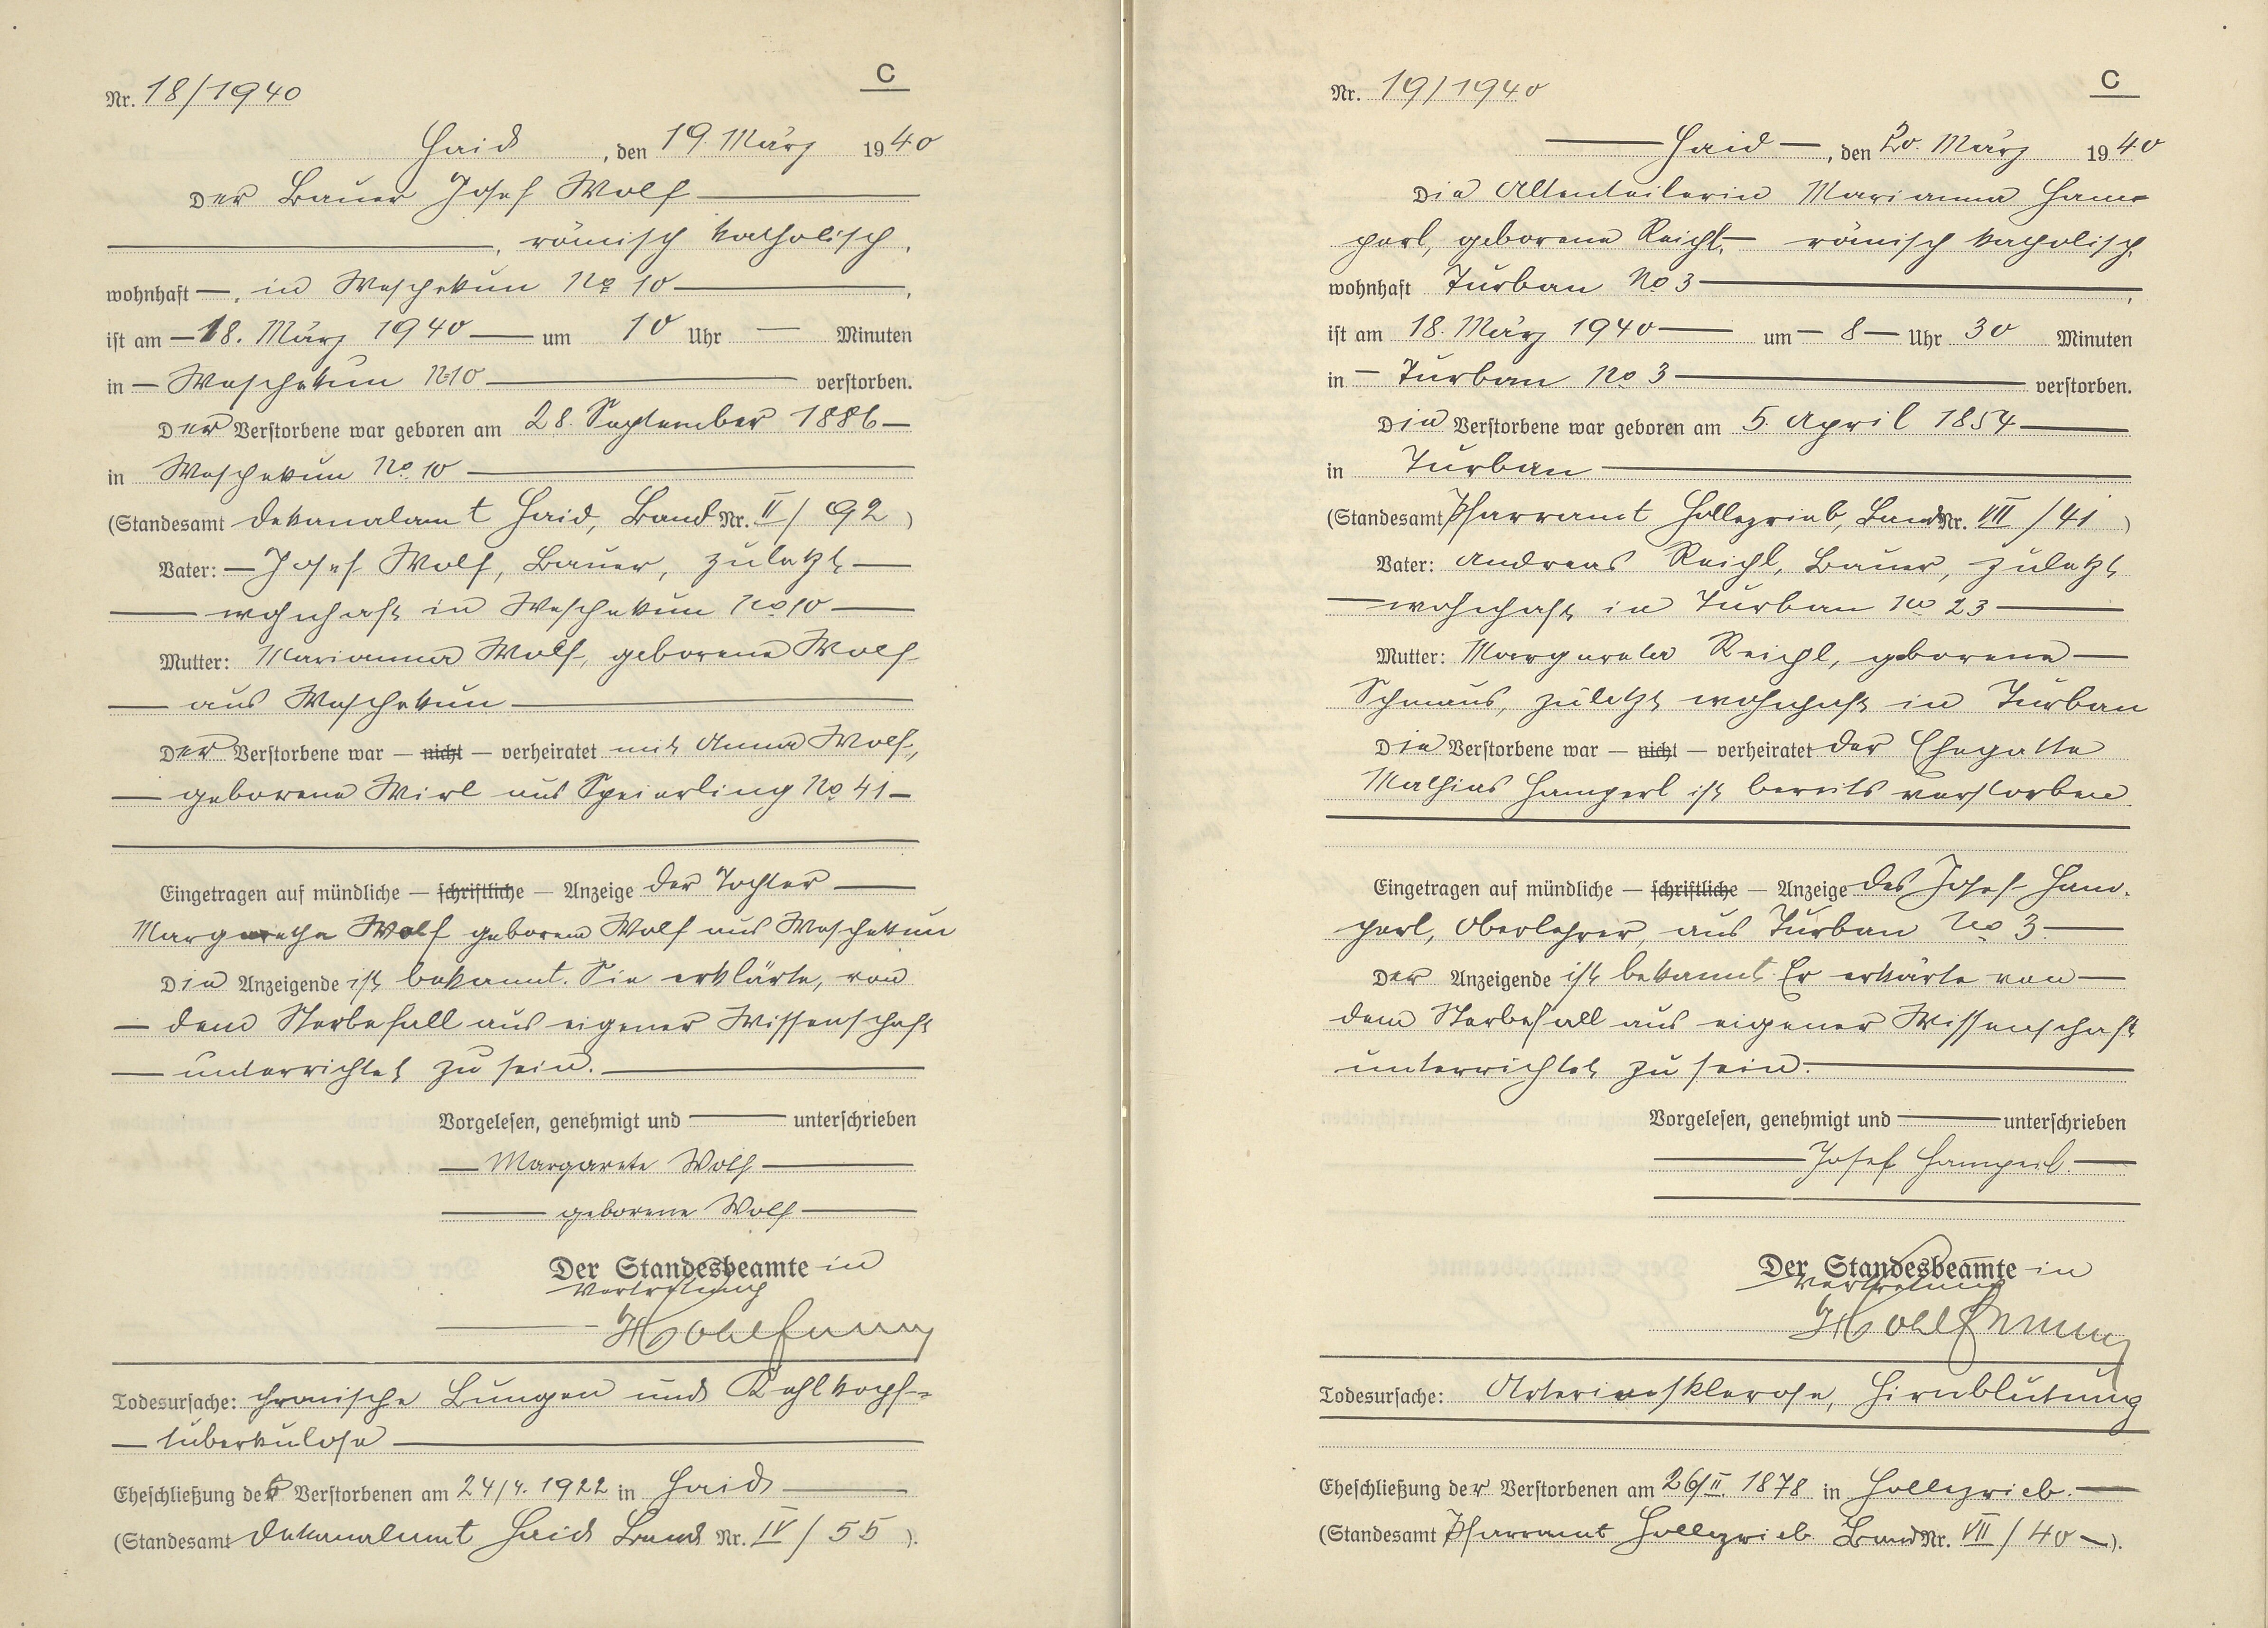 C
Nr. 18/1940
Haid, den 19. März 1940
Der Bauer Josef Wolf
, römisch katholisch,
wohnhaft in Woschekun No 10,
ist am 18. März 1940 um 10 Uhr — Minuten
in Woschekun No 10 verstorben.
Der Verstorbene war geboren am 28. September 1886
in Woschekun No 10
(Standesamt Dekanalamt Haid, Band Nr. II / 92)
Vater: Josef Wolf, Bauer, zuletzt
wohnhaft in Woschekun No 10
Mutter: Marianna Wolf, geborene Wolf
aus Woschekun
Der Verstorbene war — nicht — verheiratet mit Anna Wolf,
geborene Wirl aus Speierling No 41
Eingetragen auf mündliche — schriftliche — Anzeige der Tochter
Margarethe Wolf geborene Wolf aus Woschekun
Die Anzeigende ist bekannt. Sie erklärte, von
dem Sterbefall aus eigener Wissenschaft
unterrichtet zu sein.
Vorgelesen, genehmigt und unterschrieben
Margarete Wolf
geborene Wolf
Der Standesbeamte in
Vertretung
Todesursache: chronische Lungen und Kehlkopf-
tuberkulose
Eheschließung des Verstorbenen am 24/4. 1922 in Haid
(Standesamt Dekanalamt Haid Band Nr. IV / 55).
C
Nr. 19/1940
Haid, den 20. März 1940
Die Altenteilerin Marianna Ham-
perl, geborene Reichl, römisch katholisch,
wohnhaft Turban No 3,
ist am 18. März 1940 um 8 Uhr 30 Minuten
in Turban No 3 verstorben.
Die Verstorbene war geboren am 5. April 1854
in Turban
(Standesamt Pfarramt Hollezrieb, Band Nr. VII / 41)
Vater: Andreas Reichl, Bauer, zuletzt
wohnhaft in Turban No 23
Mutter: Margareta Reichl, geborene
Schmaus, zuletzt wohnhaft in Turban
Die Verstorbene war — nicht — verheiratet der Ehegatte
Mathias Hamperl ist bereits verstorben.
Eingetragen auf mündliche — schriftliche — Anzeige des Josef Ham-
perl, Oberlehrer, aus Turban No 3
Der Anzeigende ist bekannt. Er erkärte von
dem Sterbefall aus eigener Wissenschaft
unterrichtet zu sein.
Vorgelesen, genehmigt und unterschrieben
Josef Hamperl.
Der Standesbeamte in
Vertretung
Todesursache: Arteriosklerose, Hirnblutung
Eheschließung der Verstorbenen am 26/II. 1878 in Hollezrieb.
(Standesamt Pfarramt Hollezrieb Band Nr. VII / 40).